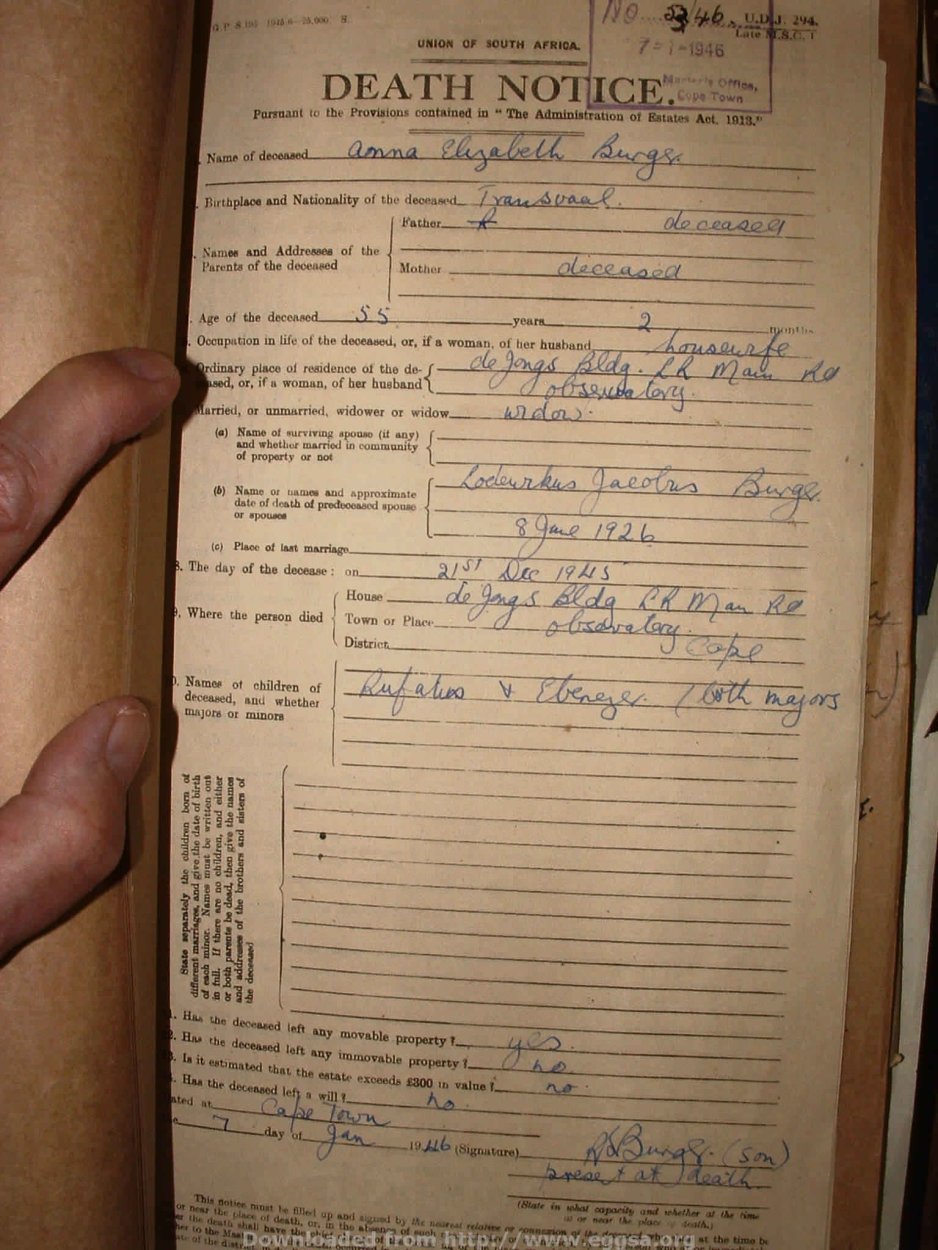 G.P. S.
No 23/46. U.D.J. 294.
Late M.S.C. 1
7-1-1946
Master's Office,
Cape Town
UNION OF SOUTH AFRICA.
DEATH NOTICE.
Pursuant to the Provisions contained in "The Administration of Estates Act, 1913."
. Name of deceased Anna Elizabeth Burger.
. Birthplace and Nationality of the deceased Transvaal.
. Names and Addresses of the Parents of the deceased
Father deceased
Mother deceased
. Age of the deceased 55 years 2 months
. Occupation in life of the deceased, or, if a woman, of her husband housewife
Ordinary place of residence of the de-
ased, or, if a woman, of her husband
de Jongs Bldg. LR Main Rd
observatory.
Married, or unmarried, widower or widow widow.
(a) Name of surviving spouse (if any)
and whether married in community
of property or not
(b) Name or names and approximate
date of death of predeceased spouse
or spouses
Lodewikus Jacobus Burger.
8 June 1926
(c) Place of last marriage
8. The day of the decease: on 21ST Dec 1945
9. Where the person died
House de Jongs Bldg LR Main Rd
Town or Place observatory.
District Cape
0. Names of children of
deceased, and whether
majors or minors
& Ebenezer. (both majors
State separately the children born of
different marriages, and give the date of birth
of each minor. Names must be written out
in full. If there are no children, and either
or both parents be dead, then give the names
and addresses of the brothers and sisters of
the deceased
1. Has the deceased left any movable property? yes.
2. Has the deceased left any immovable property? no
3. Is it estimated that the estate exceeds £300 in value? no.
. Has the deceased left a will? no
ated at Cape Town
e 7 day of Jan 1946 (Signature) Burger. (son)
present at death.
(State in what capacity and whether at the time
at or near the place of death.)
This notice must be filled up and signed by the nearest relative or connexion of the
or near the place of death, or, in the absence of such at the time be
Downloaded from http://www.eggsa.org